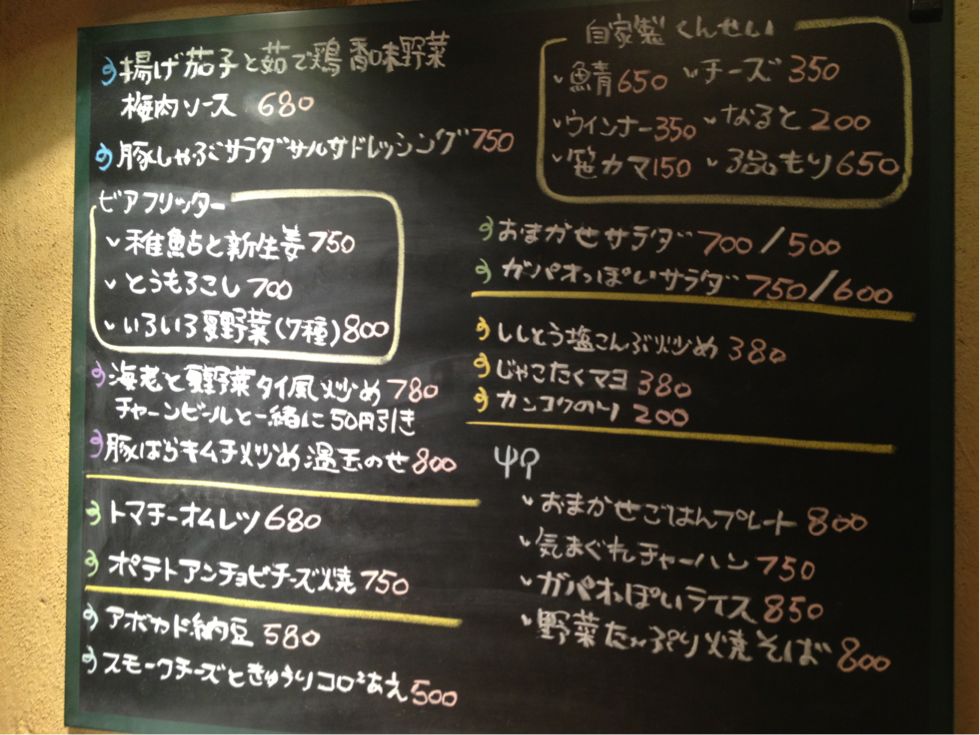 揚げ茄子と茹で鶏 香味野菜
梅肉ソース 680
豚しゃぶサラダサルサドレッシング 750
ビアフリッター
稚鮎と新生姜 750
とうもろこし 700
いろいろ夏野菜(7種) 800
海老と夏野菜タイ風炒め 780
チャーンビールと一緒に50円引き
豚ばらキムチ炒め 温玉のせ 800
トマチーオムレツ 680
ポテトアンチョビチーズ焼 750
アボカド納豆 580
スモークチーズときゅうりコロコロあえ 500
自家製くんせい
鯖 650 チーズ 350
ウインナー 350 なると 200
笹カマ 150 3品もり 650
おまかせサラダ 700/500
ガパオっぽいサラダ 750/600
ししとう塩こんぶ炒め 380
じゃこたくマヨ 380
カンコクのり 200
おまかせごはんプレート 800
気まぐれチャーハン 750
ガパオっぽいライス 850
野菜たっぷり焼そば 800